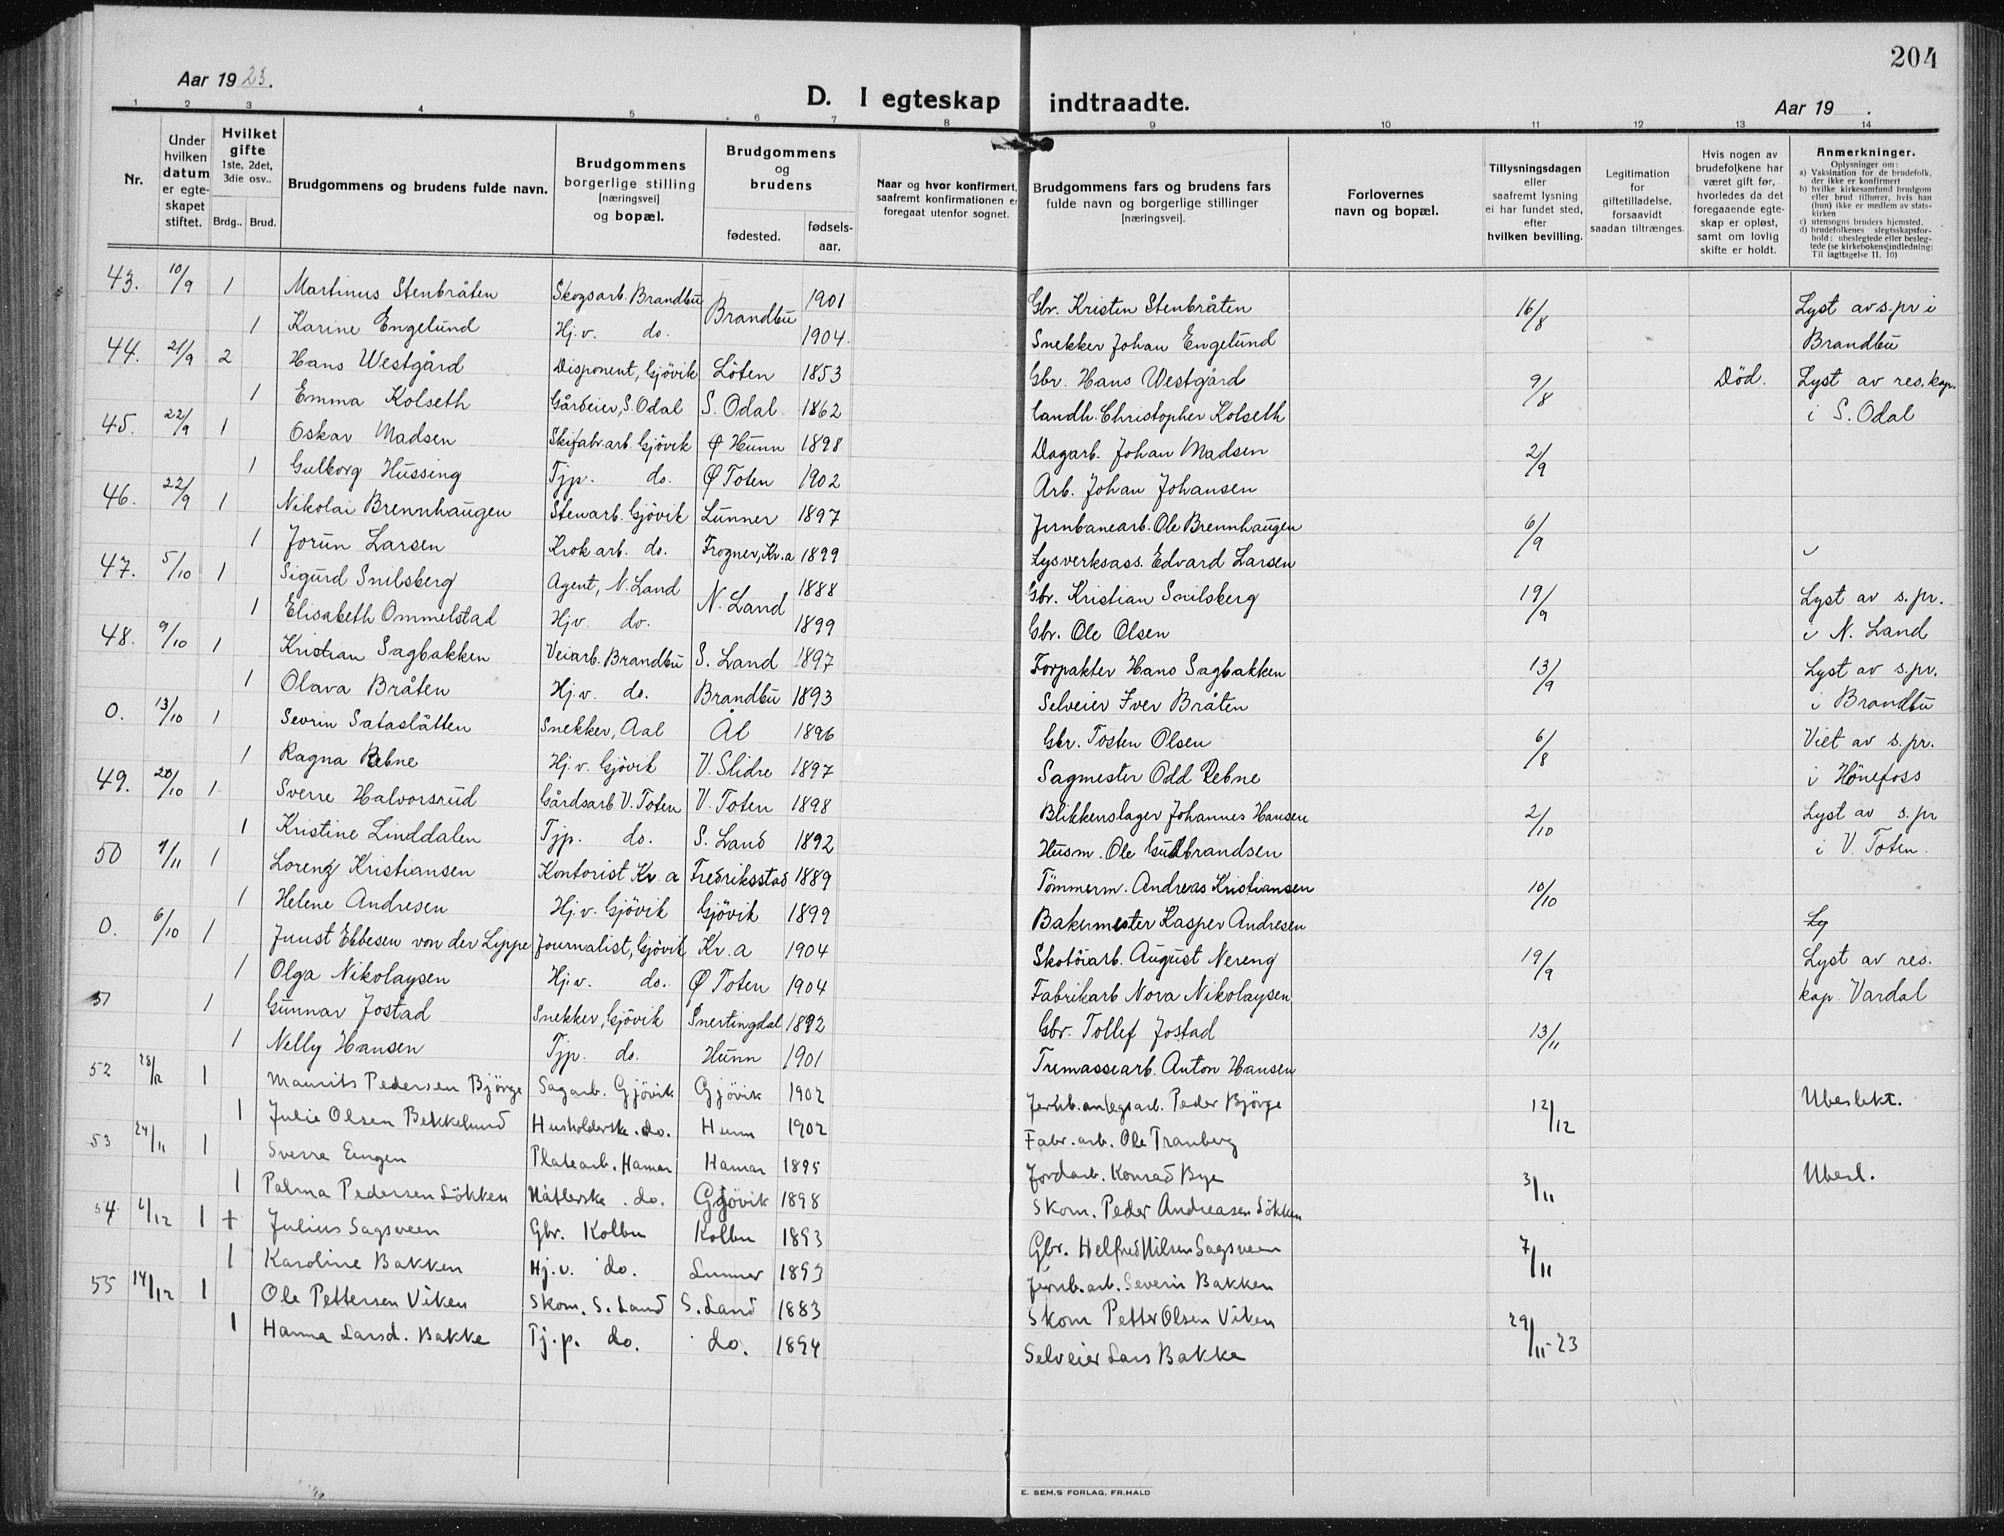 204
Aar 1923.
D. I egteskap indtraadte.
Aar 19 .
1 2 3 4 5 6 7 8 9 10 11 12 13 14
Nr.
Under hvilken datum er egteskapet stiftet.
Hvilket gifte 1ste, 2det, 3die osv..
Brdg.. Brud.
Brudgommens og brudens fulde navn.
Brudgommens borgerlige stilling [næringsvei] og bopæl.
Brudgommens og brudens
fødested.
fødsels-aar.
Naar og hvor konfirmert, saafremt konfirmationen er foregaat utenfor sognet.
Brudgommens fars og brudens fars fulde navn og borgerlige stillinger [næringsvei].
Forlovernes navn og bopæl.
Tillysningsdagen eller saafremt lysning ei har fundet sted, efter hvilken bevilling.
Legitimation for giftetilladelse, forsaavidt saadan tiltrænges.
Hvis nogen av brudefolkene har været gift før, hvorledes da det foregaaende egteskap er opløst, samt om lovlig skifte er holdt.
Anmerkninger.
Oplysninger om:
a) Vaksination for de brudefolk, der ikke er konfirmert
b) hvilke kirkesamfund brudgom eller brud tilhører, hvis han (hun) ikke er medlem av statskirken
c) utensogns bruders hjemsted.
d) brudefolkenes slegtsskapsforhold: ubeslegtede eller beslegtede (se kirkebokens indledning: Til iagttagelse II. 10)
43. 10/9 1 Martinus Stenbråten Skogsarb. Brandbu Brandbu 1901 Gbr. Kristen Stenbråten 16/8 Lyst av s.pr i
1 Karine Engelund Hj.v. do. 1904. Snekker Johan Engelund Brandbu
44. 21/9 2 Hans Westgård Disponent, Gjövik Löten 1853 Gbr. Hans Westgård 9/8 Död. Lyst av res. kap.
1 Emma Kolseth Gårbeier, S. Odal S. Odal 1862 Landh. Christopher Kolseth i S. Odal
45. 22/9 1 Oskar Madsen Skifabr.arb. Gjövik Hunn 1898 Dagarb. Johan Madsen 2/9
1 Gulborg Hussing Tjp. do. Ø Toten 1902 Arb. Johan Johansen
46. 22/9 1 Nikolai Brennhaugen Stenarb. Gjövik Lunner 1897 Jernbanearb. Ole Brennhaugen 6/9
1 Jorun Larsen Krokarb. do. Frogner, Kr.a 1899 Lysverksass. Edvard Larsen
47. 5/10 1 Sigurd Snilsberg Agent, N. Land N. Land 1888 Gbr. Kristian Snilsberg 19/9 Lyst av s. pr.
1 Elisabeth Ommelstad Hjv. do. 1899 Gbr. Ole Olsen i N. Land
48. 9/10 1 Kristian Sagbakken Veiarb. Brandbu S. Land 1897 Forpakter Hans Sagbakken 13/9 Lyst av s.pr.
1 Olava Bråten Hj.v. do. Brandbu 1893 Selveier Iver Bråten i Brandbu
0. 13/10 1 Sevrin Sataslåtten Snekker, Aal Ål 1896 Gbr. Tosten Olsen 6/8 Viet av s.pr.
1 Ragna Rebne Hj.v. Gjövik V. Slidre 1897 Sagmester Odd Rebne i Hönefoss
49. 20/10 1 Sverre Halvorsrud Gårdsarb V. Toten V. Toten 1898 Blikkenslager Johannes Hansen 2/10 Lyst av s.pr
1 Kristine Linddalen Tjp. do. S. Land 1892 Husm. Ole Gudbrandsen i V. Toten.
50 /11 1 Lorenz Kristiansen Kontorist Kr.a Fredriksstad 1889 Tömmerm. Andreas Kristiansen 10/10
1 Helene Andresen Hj.v. Gjövik Gjövik 1899 Bakermester Kasper Andresen
0. 6/10 1 Juust Ebbesen von der Lippe Journalist, Gjövik Kr.a 1904 Skotöiarb. August Nereng 19/9 Lyst av res.
1 Olga Nikolaysen Hj.v. do. Ø Toten 1904 Fabrikarb Nora Nikolaysen kap. Vardal
51 1 Gunnar Jostad Snekker, Gjövik Snertingdal 1892 Gbr. Tollef Jostad 13/11
1 Nelly Hansen Tjp. do. Hunn 1901 Tremassearb. Anton Hansen
52 28/12 1 Maurits Pedersen Björge Sagarb. Gjövik Gjövik 1902 Jernb.anlegsarb. Peder Bjørge 12/12 Ubeslekt.
1 Julie Olsen Bekkelund Husholderske. do. Hunn 1902 Fabr.arb. Ole Tranberg
53 24/11 1 Sverre Engen Platearb. Hamar Hamar 1895 Jordarb. Konrad Bye 3/11 Ubesl.
1 Palma Pedersen Lökken do. Gjövik 1898 Skom. Peder Andreasen Lökken
54 /12 1 + Julius Sagsveen Gbr. Kolbu Kolbu 1893 Gbr. Helfred Nilsen Sagsveen 7/11
1 Karoline Bakken Hj.v. do. Lunner 1893 Jernb.arb. Severin Bakken
55 14/12 1 Ole Pettersen Viken Skom. S. Land S. Land 1883 Skom Petter Olsen Viken 29/11-23
1 Hanna Larsd. Bakke Tj.p. do. do. 1894 Selveier Lars Bakke
E. SEM.S FORLAG, FR.HALD